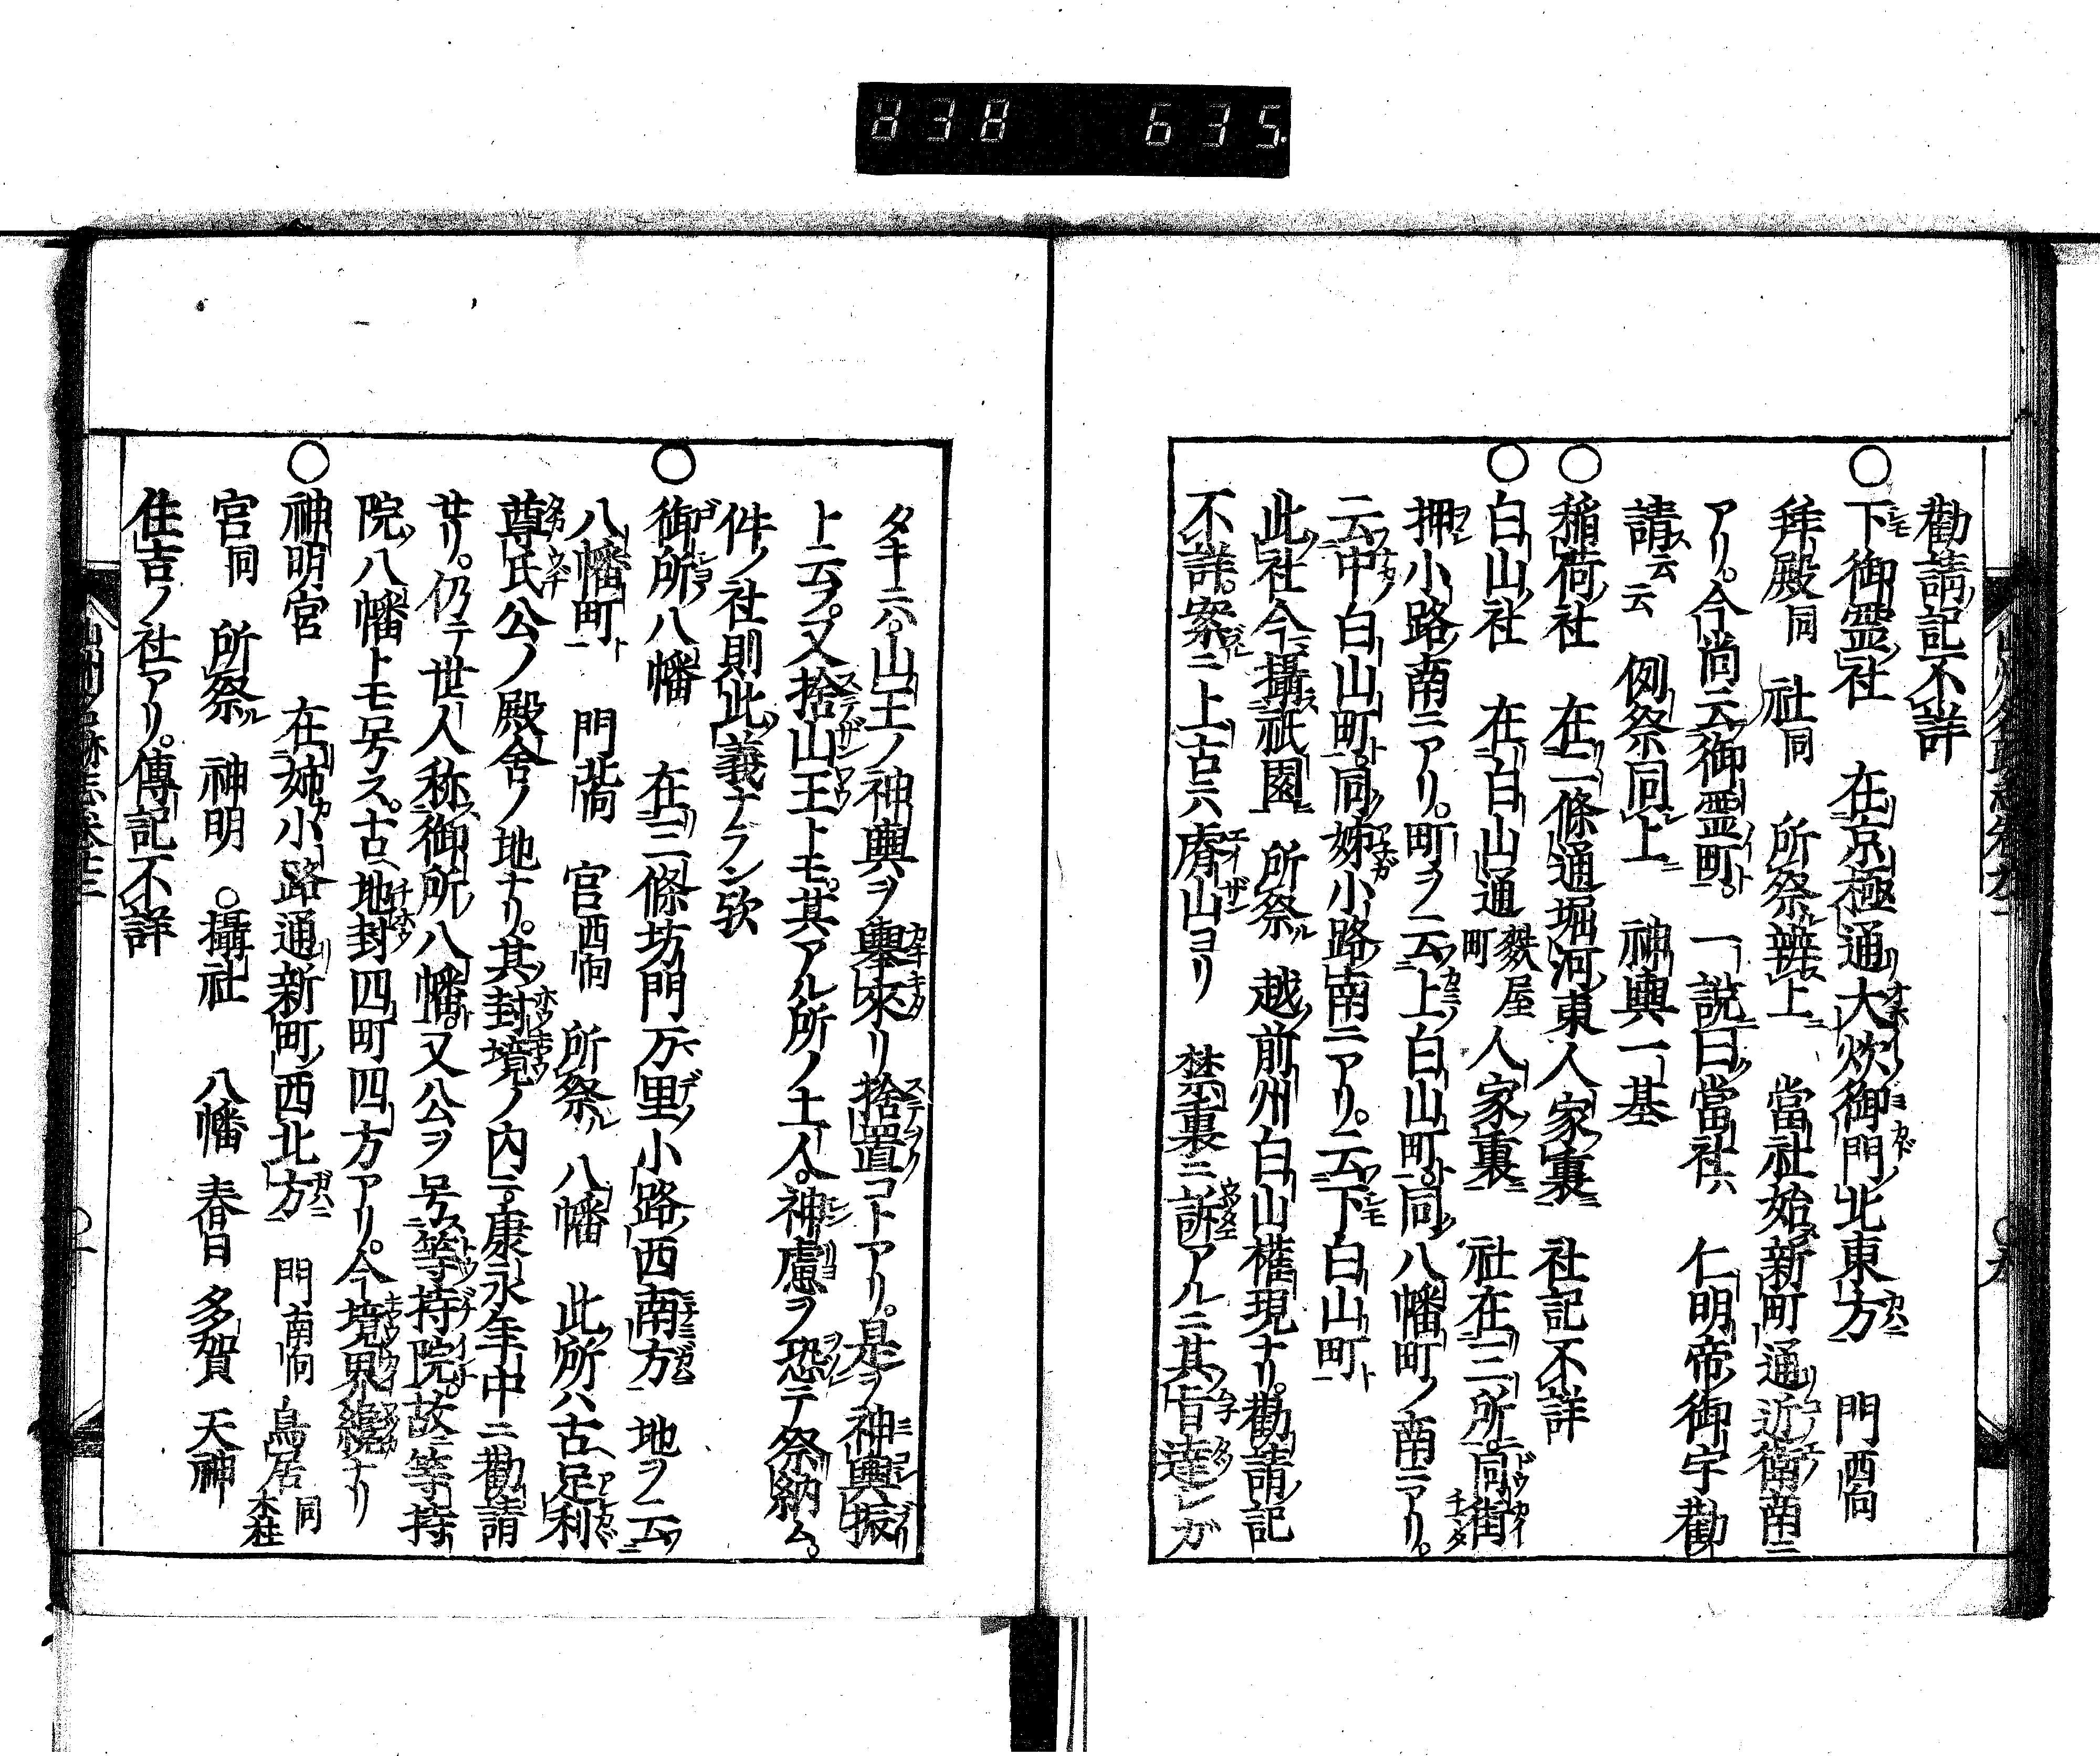 838 635
勸請記不詳
○下御霊社 在京極通大炊御門北東方 門西向
拜殿同 社同 所祭辨上 當社始新町通近衛南ニ
アリ。今尚云御霊町。一説曰當社ハ 仁明帝御宇勸
請云云 例祭同上 神輿一基
○稲荷社 在二條通堀河東人家裏 社記不詳
○白山社 在白山通麩屋町人家裏 社在三所同街
押小路南ニアリ。町ヲ云上白山町。同八幡町ノ南ニアリ。
云中白山町。同姉小路南ニアリ。云下白山町
此社今攝祇園 所祭ル 越前州白山権現ナリ。勸請記
不詳。案ニ上古ハ睿山ヨリ 禁裏ニ訴アルニ其旨達シガ
タキニハ。山王ノ神輿ヲ舉來リ捨置コトアリ。是ヲ神輿振
ト云フ。又捨山王トモ。其アル所ノ土人。神慮ヲ恐テ祭納ム。
件ノ社則此義ナラン歟
○御所八幡 在三條坊門万里小路西南方 地ヲ云
八幡町 門巽向 宮西向 所祭ル 八幡 此所ハ古足利
尊氏公ノ殿舎ノ地ナリ。其封境ノ内ニ。康永年中ニ勸請
せリ。仍テ世人称御所八幡。又公ヲ号等持院。故等持
院八幡トモ号ス。古ハ地封四町四方アリ。今境界纔ナリ
○神明宮 在姉小路通新町西北方 門南向 鳥居同木柱
宮同 所祭ル 神明 ○攝社 八幡 春日 多賀 天神
住吉ノ社アリ。傳記不詳